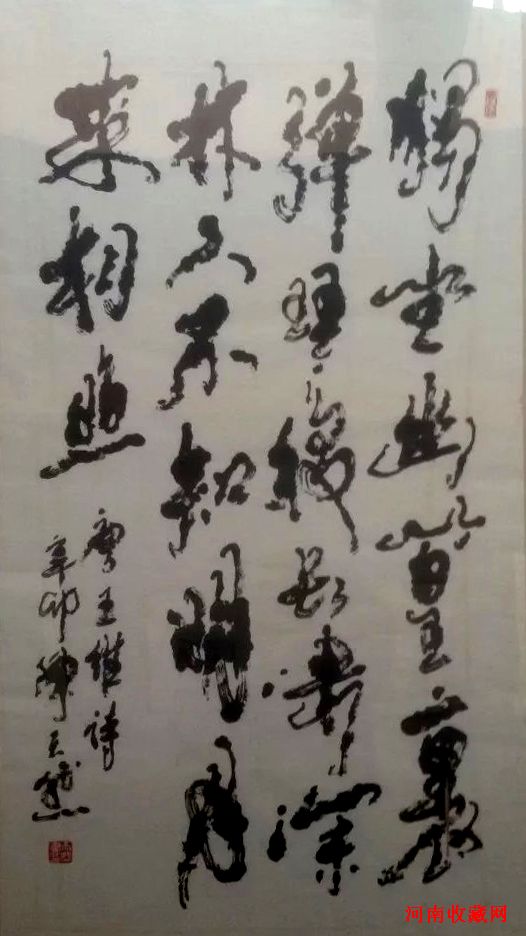 獨坐幽篁裏
彈琴復長嘯深
林人不知明月
来相照
唐王维诗
辛卯陳天然
河南收藏网